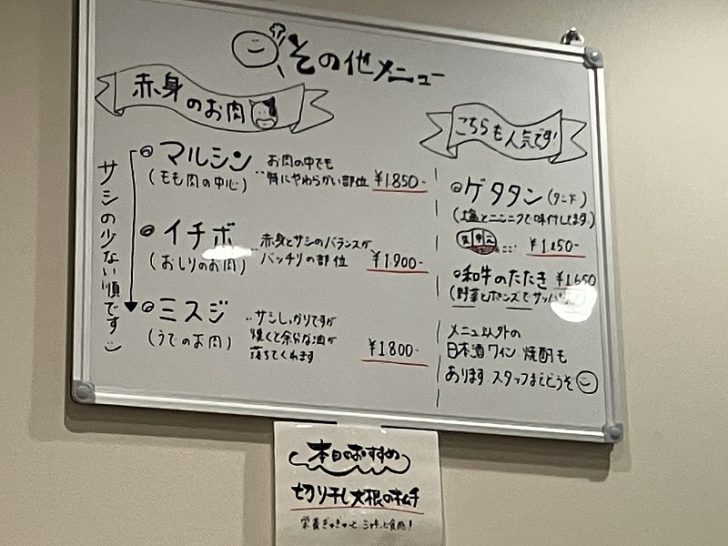 その他メニュー
赤身のお肉
サシの少ない順です
マルシン
(もも肉の中心)
お肉の中でも
特にやわらかい部位 ¥1.850-
イチボ
(おしりのお肉)
赤身とサシのバランスが
バッチリの部位 ¥1.900-
ミスジ
(うでのお肉)
サシしっかりですが
焼くと余分な油が
落ちてくれます
¥1800-
こちらも人気です!
ゲタタン(タン下)
(塩とニンニクで味付してます)
ここ
¥1.150-
和牛のたたき ¥1.650
(野菜とポンズでサッパリ
メニュー以外の
日本酒 ワイン 焼酎も
あります スタッフまでどうぞ
本日のおすすめ
切り干し大根のキムチ
栄養ぎゅぎゅっと